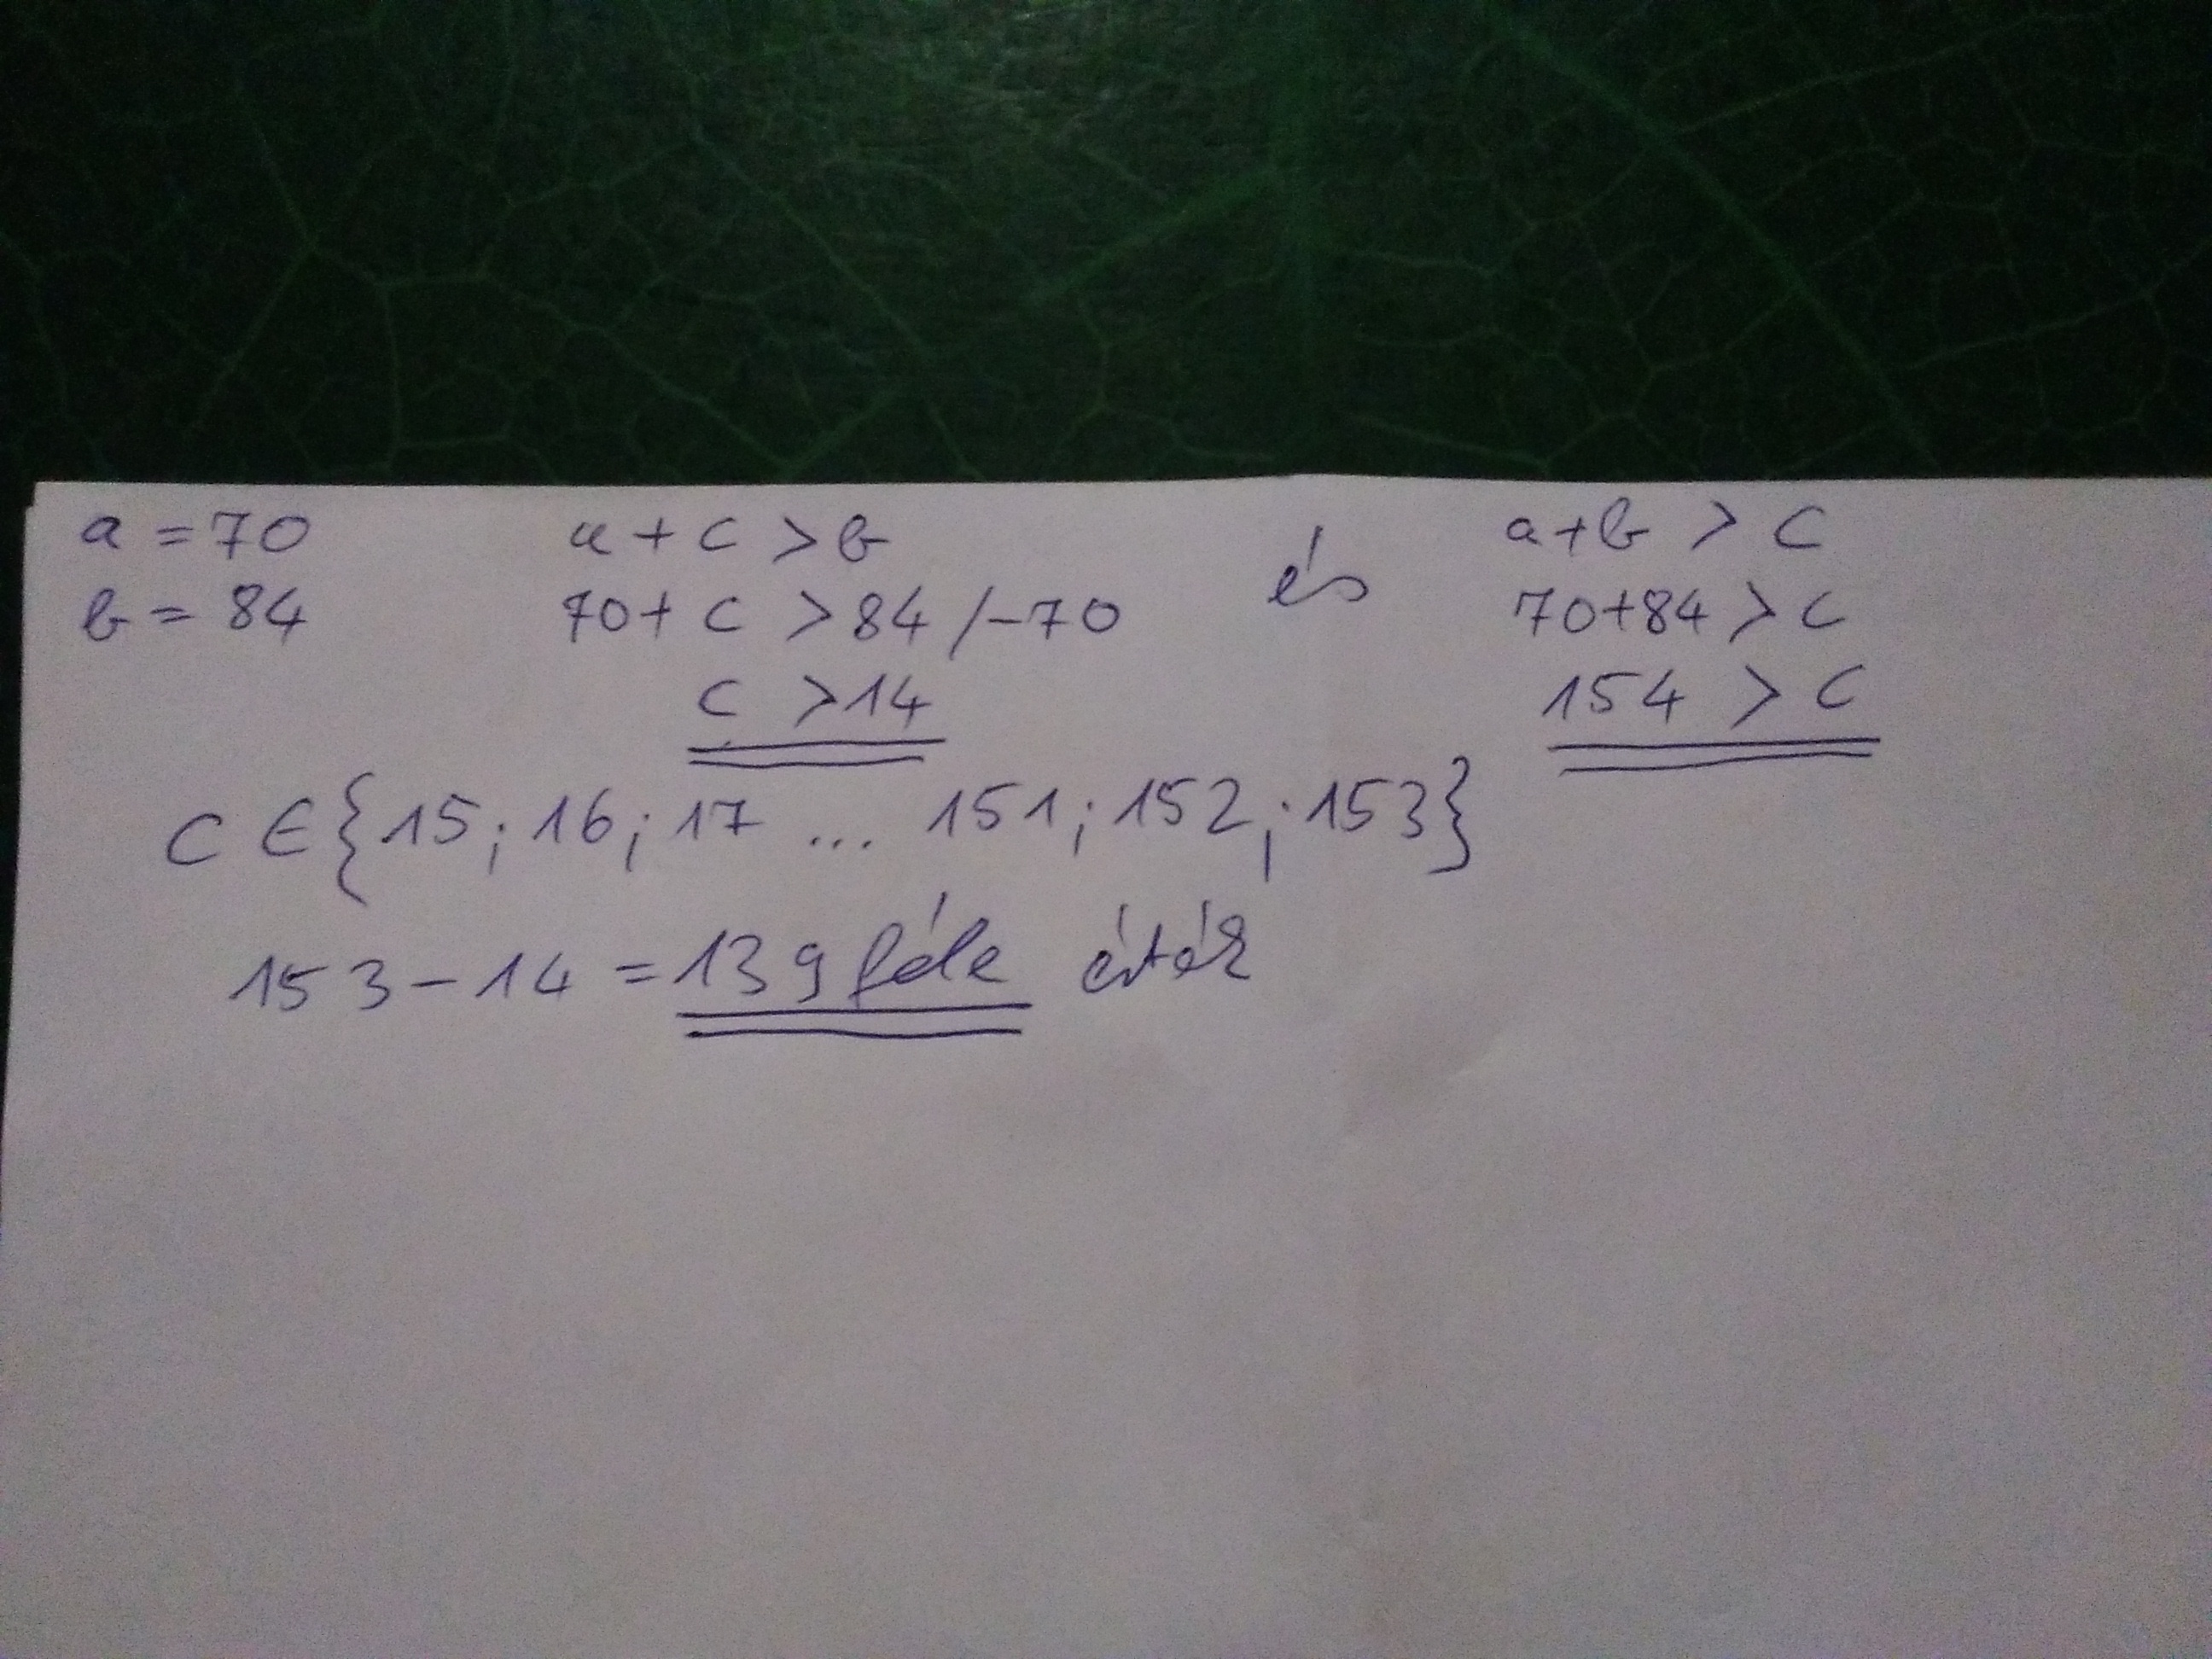 a = 70 a + c > b és a+b > c
b = 84 70 + c > 84 /-70 70+84 > c
c > 14 154 > c
c ∈ {15; 16; 17 ... 151; 152; 153}
153 - 14 = 139 féle érték